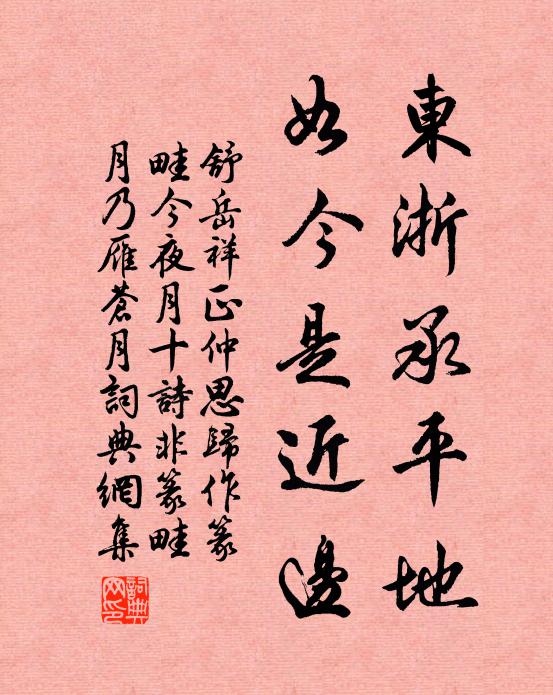 東浙承平地
如今是近邊
舒岳祥正仲思歸作篆
畦今夜月十詩非篆畦
月乃雁蒼月詞典網集
詞典网印